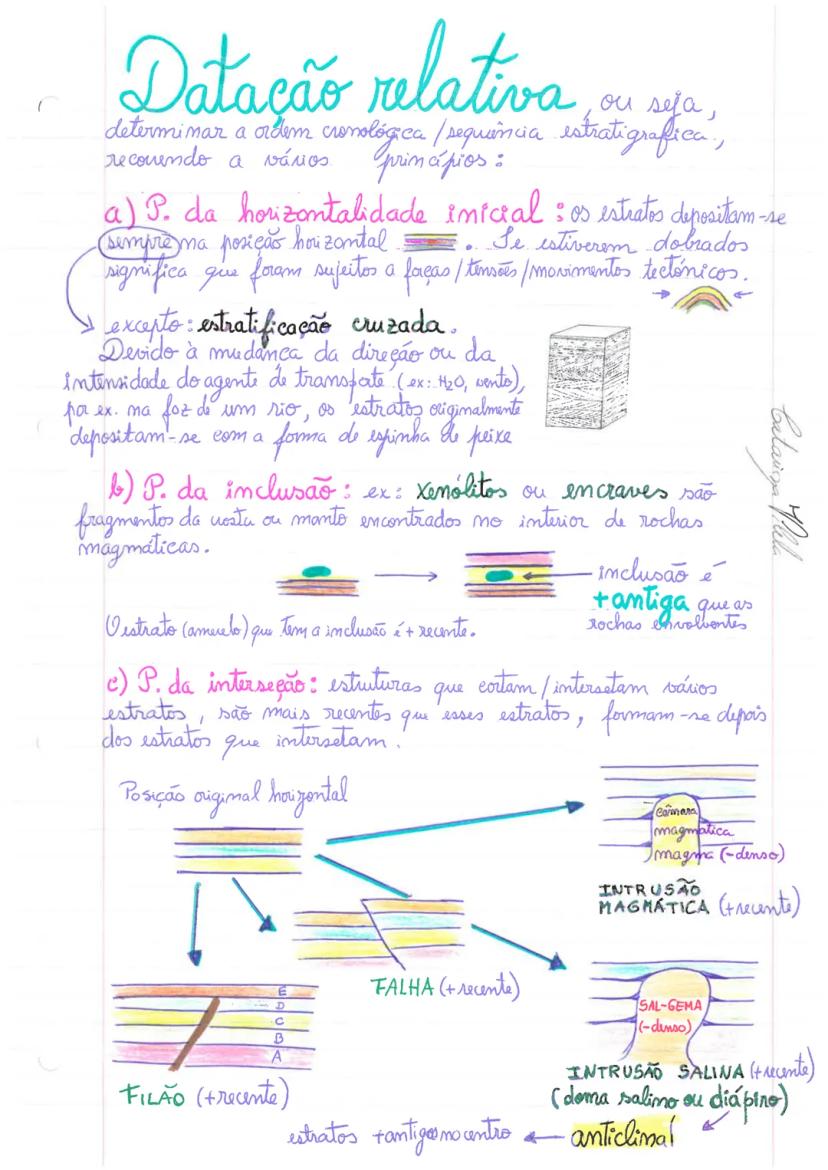 Datação relativa, ou seja,
determinar a ordem cronológica/sequência estratigrafica,
recorrendo a vários princípios:
a) P. da horizontalidade inicial: os estratos depositam-se
sempre na posição horizontal . Se estiverem dobrados
significa que foram sujeitos a forças/tensões/movimentos tectónicos.
excepto: estratificação cruzada.
Devido à mudança da direção ou da
intensidade do agente de transporte (ex: H2O, vento),
por ex. na foz de um rio, os estratos originalmente
depositam-se com a forma de espinha de peixe
b) P. da inclusão: ex: xenólitos ou encraves são
fragmentos da crosta ou manto encontrados no interior de rochas
magmáticas.
inclusão é
+antiga que as
rochas envolventes
O estrato (amarelo) que tem a inclusão é + recente.
c) P. da interseção: estruturas que cortam/intersetam vários
estratos, são mais recentes que esses estratos, formam-se depois
dos estratos que intersetam.
Posição original horizontal
câmara
magmática
magma (-denso)
INTRUSÃO
MAGMÁTICA (+recente)
FALHA (+recente)
E
D
C
B
A
FILÃO (+recente)
SAL-GEMA
(-denso)
INTRUSÃO SALINA (+recente)
(doma salino ou diápiro)
estratos +antigos no centro ← anticlinal